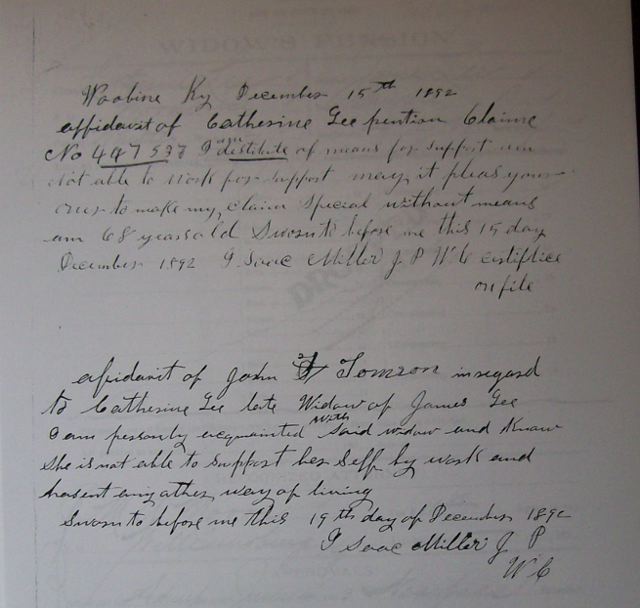 Woobine Ky December 15th 1892
affidavit of Catherine Lee pention Claime
No 447537 I am destitute of means for support am
not able to work for support may it pleas your
oner to make my claim Special without means
am 68 years old Sworn to before me this 15 day
December 1892 Isaac Miller J P W C certifice
on file
afidavit of John Tomson in regard
to Catherine Lee late Widow of James Lee
I am personly acquainted with Said widow and Know
She is not able to Support her Self by work and
hasent any other way of living
Sworn to before me this 19th day of December 1892
Isaac Miller J P
W C